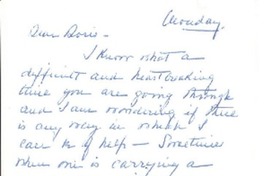 Monday.
Dear Doris –
I know what a
difficult and heartbreaking
time you are going through
and I am wondering if there
is any way in which I
can be of help – Sometimes
when one is carrying a